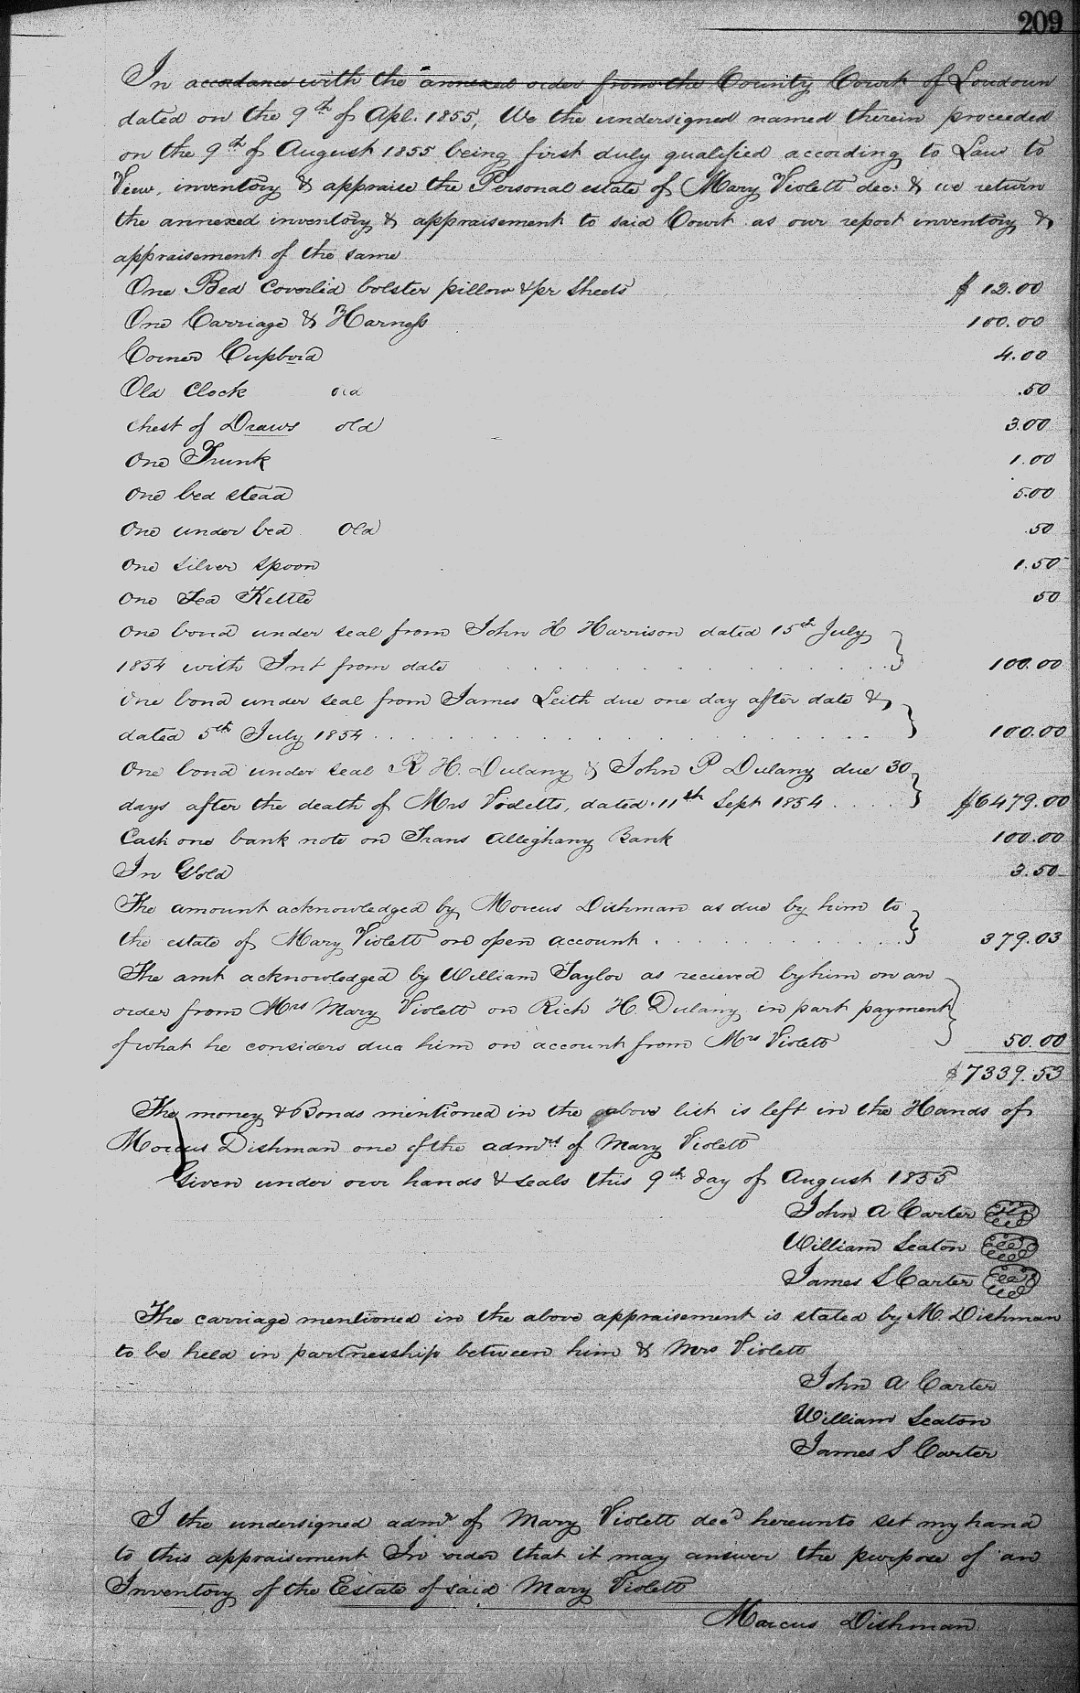 209
In accordance with the annexed order from the County Court of Loudoun
dated on the 9th of Apl. 1855, We the undersigned named therein proceeded
on the 9th of August 1855 being first duly qualified according to Law to
View, inventory & appraise the Personal estate of Mary Violett dec. & we return
the annexed inventory & appraisement to said Court as our report inventory &
appraisement of the same
One Bed Coverlid bolster pillow & pr Sheets $ 12.00
One Carriage & Harness 100.00
Corner Cupbord 4.00
Old Clock old .50
Chest of Draws old 3.00
One Trunk 1.00
One bed stead 5.00
One under bed Old .50
One silver spoon 1.50
One Tea Kettle 50
One bond under seal from John H Harrison dated 15th July
1854 with Int from date 100.00
One bond under seal from James Leith due one day after date &
dated 5th July 1854 100.00
One bond under seal R H. Dulany & John P Dulany due 30
days after the death of Mrs Violetts, dated 11th Sept 1854 $6479.00
Cash one bank note on Trans Alleghany Bank 100.00
In Gold 3.50
The amount acknowledged by Marcus Dishman as due by him to
the estate of Mary Violett on open account 379.03
The amt acknowledged by William Taylor as recieved by him on an
order from Mrs Mary Violett on Rich H. Dulany in part payment
of what he considers due him on account from Mrs Violett 50.00
$7339.53
The money & Bonds mentioned in the above list is left in the Hands of
Marcus Dishman one of the admrs of Mary Violett
Given under our hands & seals this 9th day of August 1855
John A Carter
William Seaton
James S Carter
The carriage mentioned in the above appraisement is stated by M. Dishman
to be held in partnership between him & Mrs Violett
John A Carter
William Seaton
James S Carter
I the undersigned admr of Mary Violett decd hereunto set my hand
to this appraisement In order that it may answer the purpose of an
Inventory of the Estate of said Mary Violett
Marcus Dishman